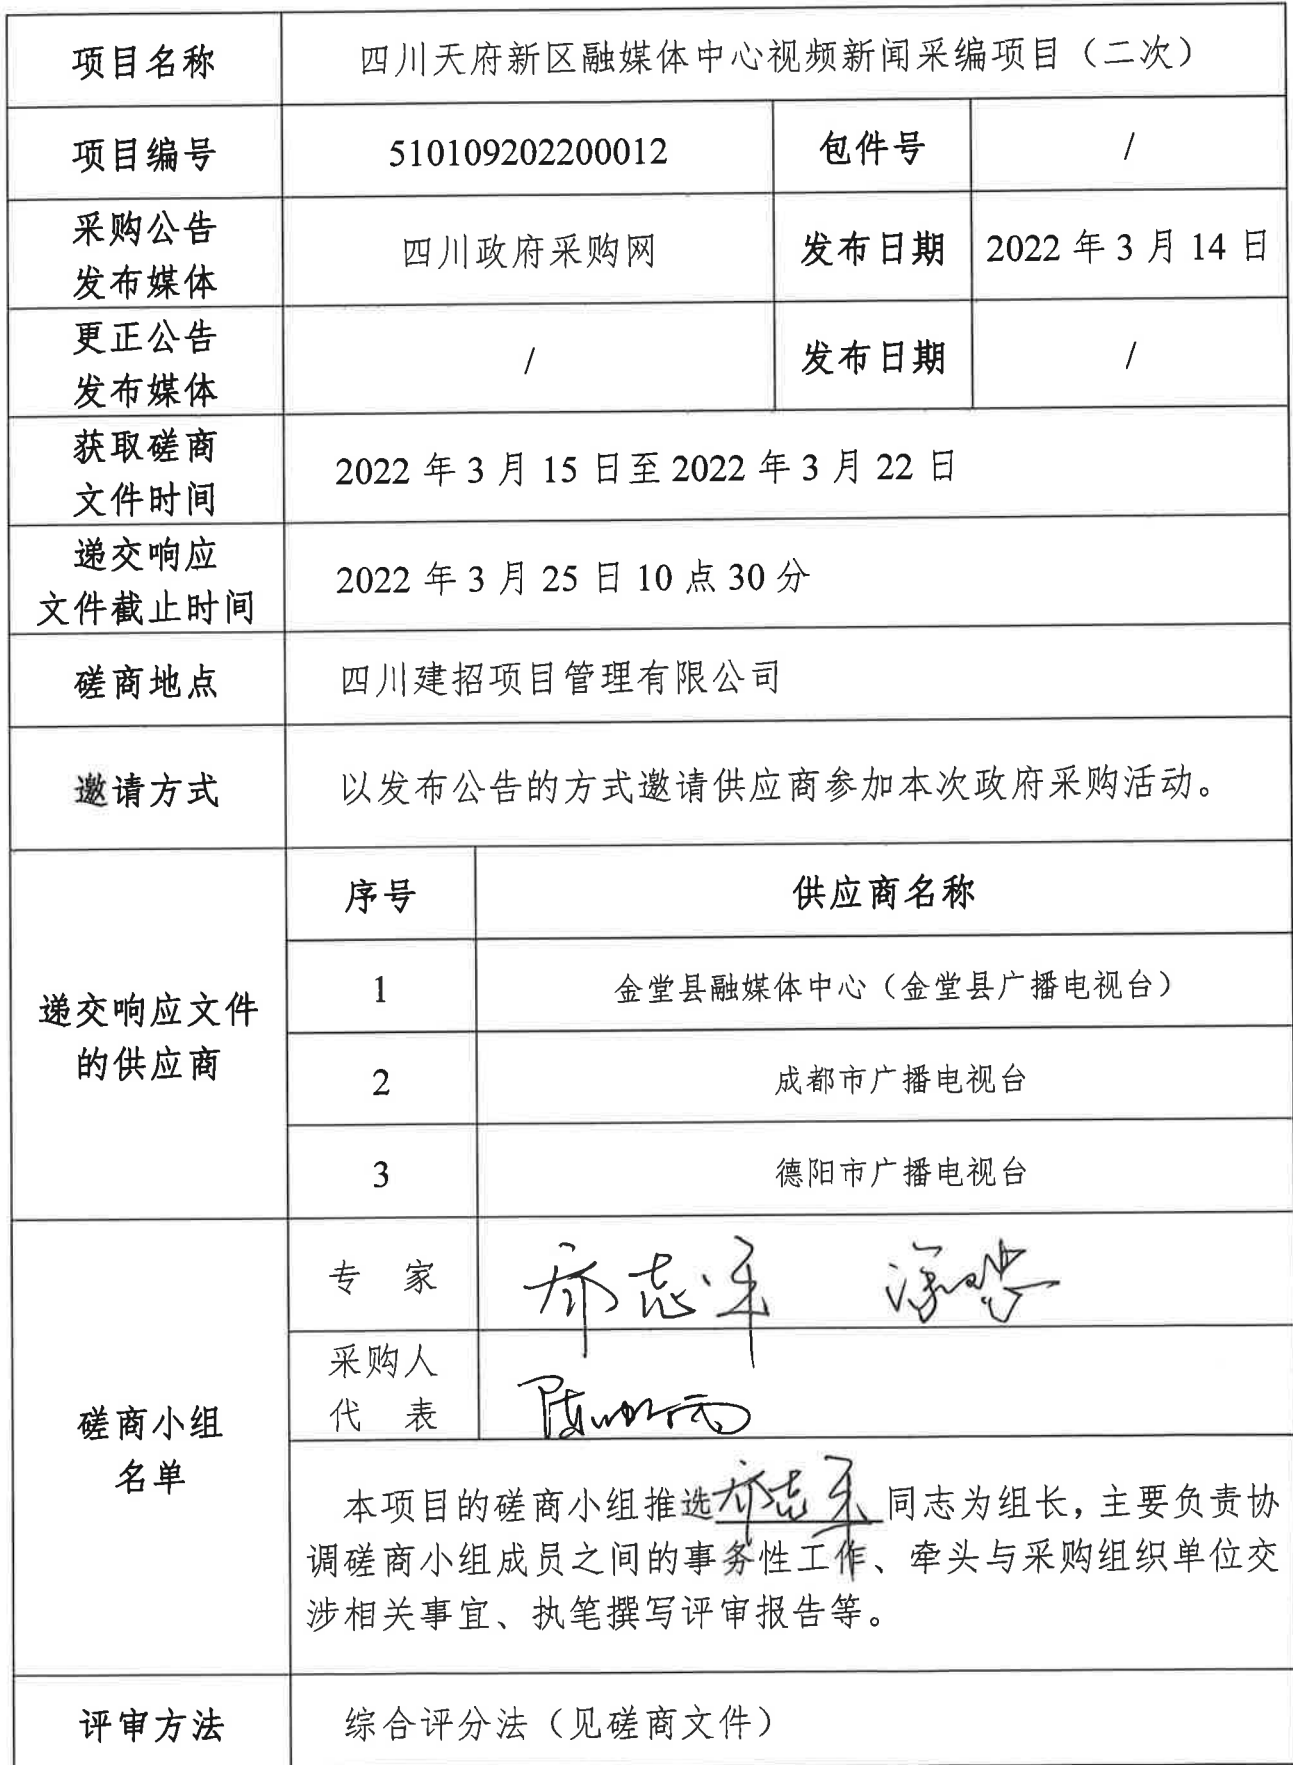 项目名称 四川天府新区融媒体中心视频新闻采编项目（二次）
项目编号 510109202200012 包件号 /
采购公告
发布媒体 四川政府采购网 发布日期 2022年3月14日
更正公告
发布媒体 / 发布日期 /
获取磋商
文件时间 2022年3月15日至2022年3月22日
递交响应
文件截止时间 2022年3月25日10点30分
磋商地点 四川建招项目管理有限公司
邀请方式 以发布公告的方式邀请供应商参加本次政府采购活动。
递交响应文件
的供应商
序号 供应商名称
1 金堂县融媒体中心（金堂县广播电视台）
2 成都市广播电视台
3 德阳市广播电视台
磋商小组
名单
专 家
采购人
代 表
本项目的磋商小组推选 同志为组长，主要负责协
调磋商小组成员之间的事务性工作、牵头与采购组织单位交
涉相关事宜、执笔撰写评审报告等。
评审方法 综合评分法（见磋商文件）